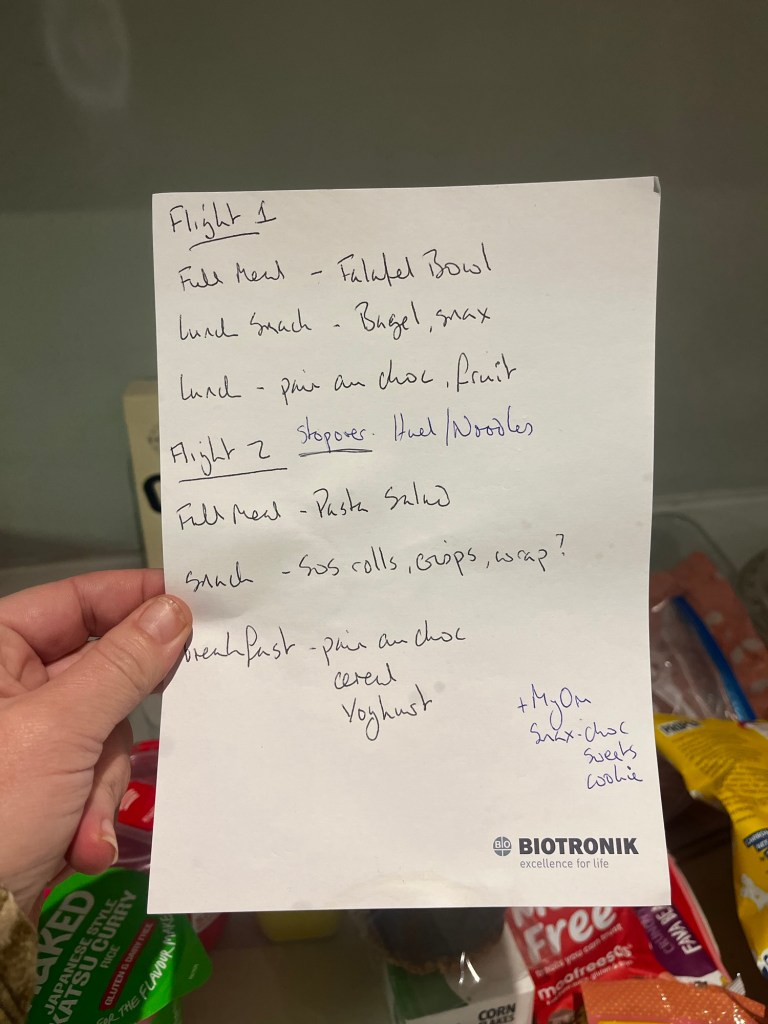 Flight 1
Full Meal - Falafel Bowl
Lunch Snack - Bagel, snax
Lunch - pain au choc, fruit
Stopover - Huel/Noodles
Flight 2
Full Meal - Pasta Salad
Snack - Sos rolls, crisps, wrap?
Breakfast - pain au choc
cereal
Yoghurt
+MyOm
Snax-choc
Sweets
Cookie
BIO BIOTRONIK
excellence for life
NAKED
JAPANESE STYLE
KATSU CURRY
RICE
GLUTEN & DAIRY FREE
FOR THE FLAVOUR
CORN
FLAKES
Free
moofreesch
FAVA